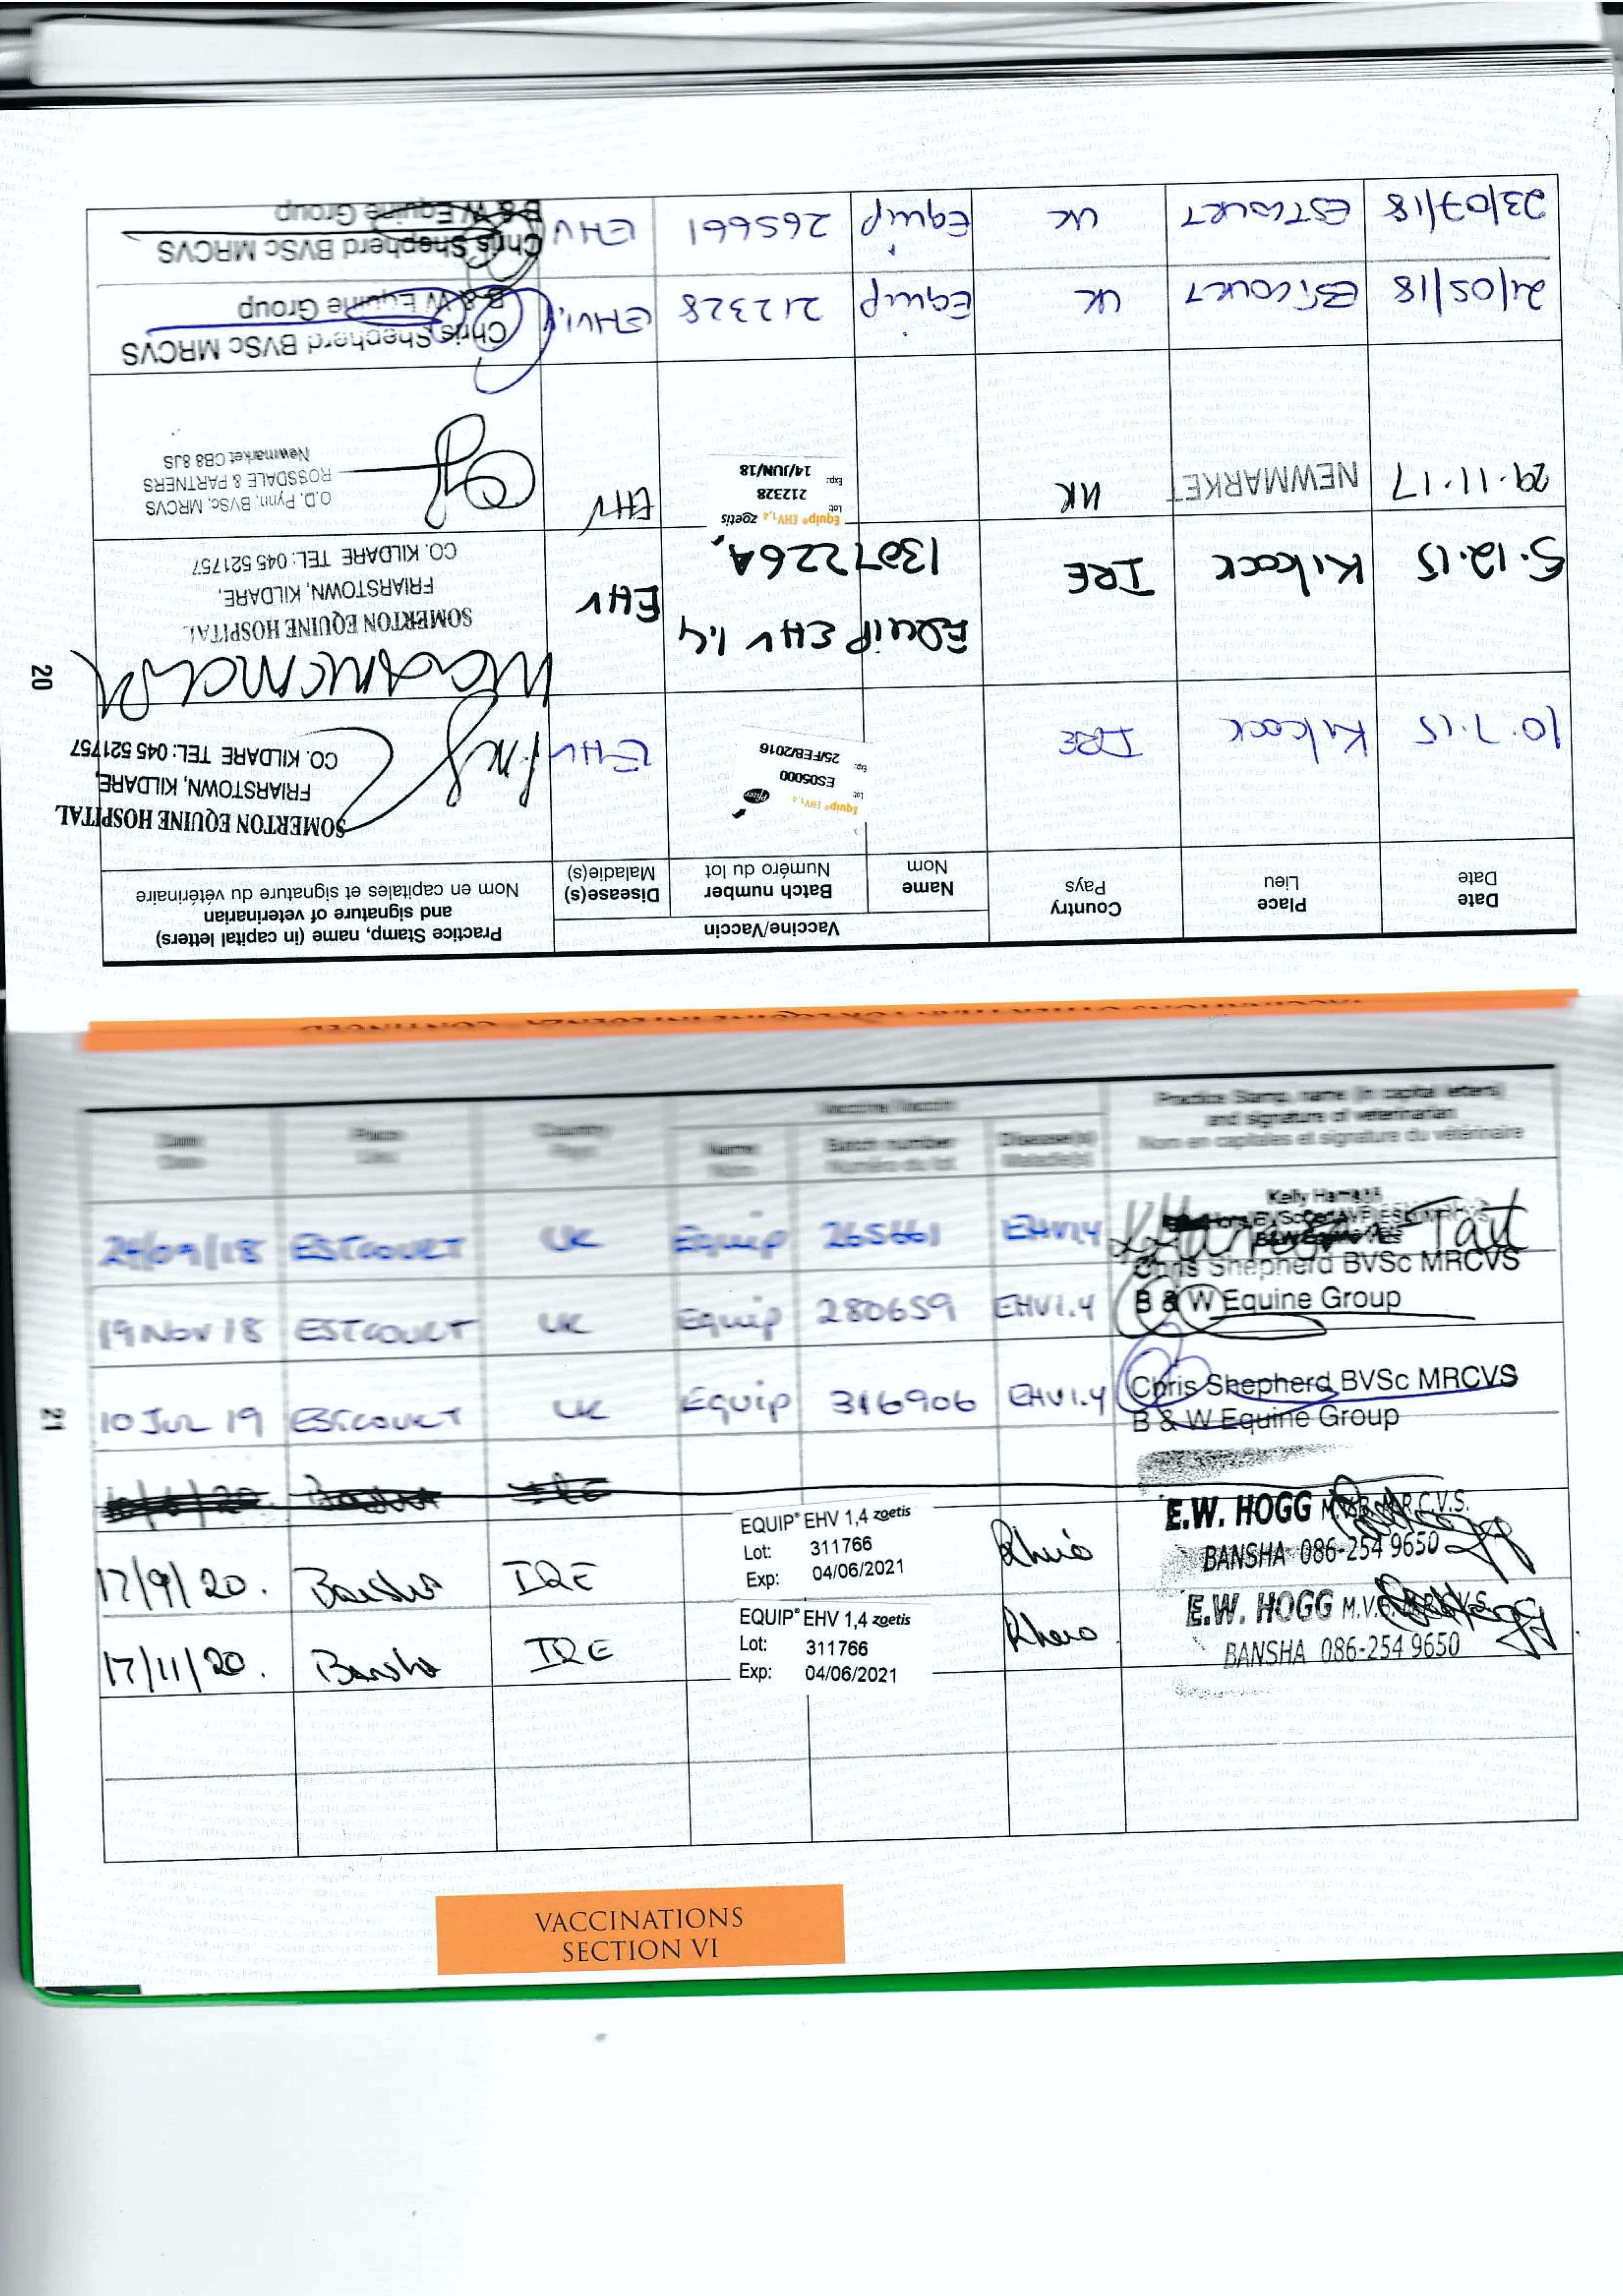 20
Date
Date
Place
Lieu
Country
Pays
Vaccine/Vaccin
Name
Nom
Batch number
Numéro du lot
Disease(s)
Maladie(s)
Practice Stamp, name (in capital letters)
and signature of veterinarian
Nom en capitales et signature du vétérinaire
10.7.15 Kilcock IRE
Equip® EHV1,4 Pfizer
Lot: ES05000
Exp: 25/FEB/2016
EHV
SOMERTON EQUINE HOSPITAL
FRIARSTOWN, KILDARE,
CO. KILDARE TEL: 045 521757
5.12.15 Kilcock IRE EQUIP EHV 1,4
1307226A EHV
SOMERTON EQUINE HOSPITAL
FRIARSTOWN, KILDARE,
CO. KILDARE TEL: 045 521757
29.11.17 NEWMARKET UK
Equip® EHV1,4 zoetis
Lot: 212328
Exp: 14/JUN/18
EHV
O.D. Pynn, BVSc, MRCVS
ROSSDALE & PARTNERS
Newmarket CB8 8JS
21/05/18 ESTCOURT UK Equip 212328 EHV1,4
Chris Shepherd BVSc MRCVS
B & W Equine Group
23/07/18 ESTCOURT UK Equip 265661 EHV
Chris Shepherd BVSc MRCVS
B & W Equine Group
21
Date
Date
Place
Lieu
Country
Pays
Vaccine/Vaccin
Name
Nom
Batch number
Numéro du lot
Disease(s)
Maladie(s)
Practice Stamp, name (in capital letters)
and signature of veterinarian
Nom en capitales et signature du vétérinaire
24/09/18 ESTCOURT UK Equip 265661 EHV1,4
Kelly
19 Nov 18 ESTCOURT UK Equip 280659 EHV1.4
Chris Shepherd BVSc MRCVS
B & W Equine Group
10 JUL 19 ESTCOURT UK Equip 316906 EHV1.4
Chris Shepherd BVSc MRCVS
B & W Equine Group
17/9/20. Bansha IRE
EQUIP® EHV 1,4 zoetis
Lot: 311766
Exp: 04/06/2021
Rhino
E.W. HOGG
BANSHA 086-254 9650
17/11/20. Bansha IRE
EQUIP® EHV 1,4 zoetis
Lot: 311766
Exp: 04/06/2021
Rhino
E.W. HOGG
BANSHA 086-254 9650
VACCINATIONS
SECTION VI